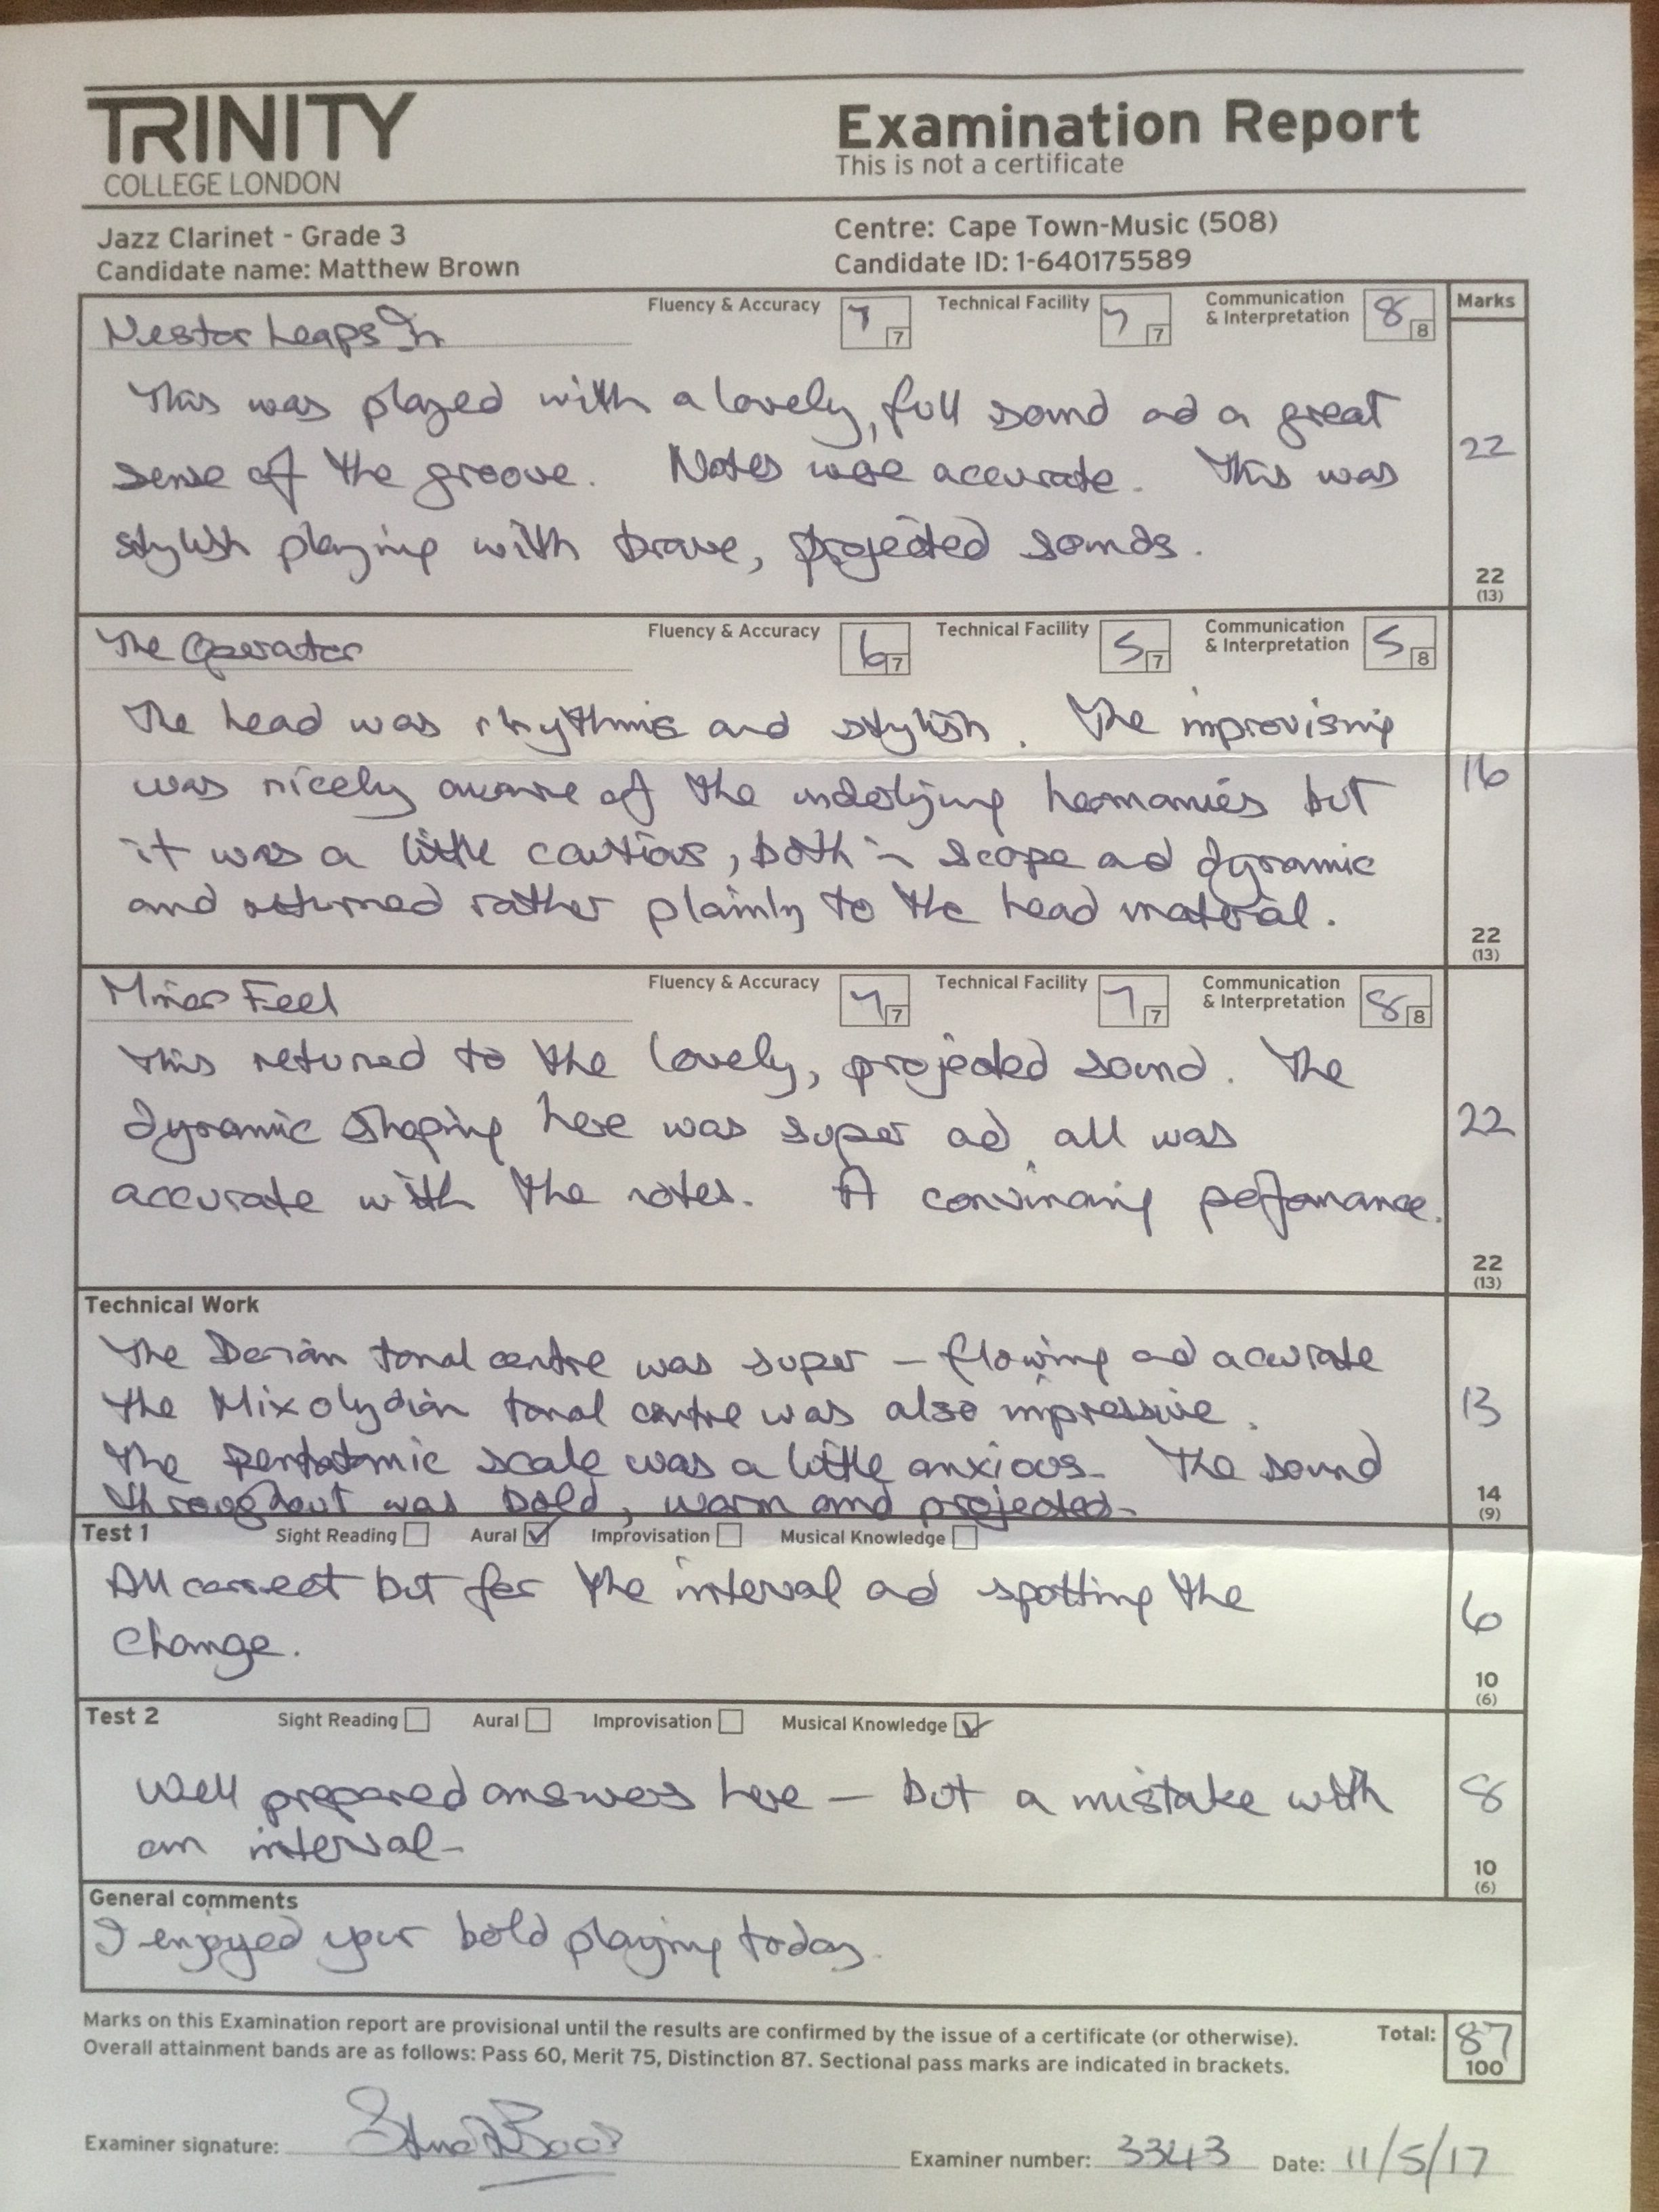 TRINITY
COLLEGE LONDON
Examination Report
This is not a certificate
Jazz Clarinet - Grade 3
Candidate name: Matthew Brown
Centre: Cape Town-Music (508)
Candidate ID: 1-640175589
Nestor Leaps In
Fluency & Accuracy 7 7 Technical Facility 7 7 Communication & Interpretation 8 8
Marks
This was played with a lovely, full sound ad a great
sense of the groove. Notes were accurate. This was
stylish playing with brave, projected sounds.
22
22
(13)
The Operator
Fluency & Accuracy 6 7 Technical Facility 5 7 Communication & Interpretation 5 8
The head was rhythmic and stylish. The improvising
was nicely aware of the underlying harmonies but
it was a little cautious, both in scope ad dynamic
and returned rather plainly to the head material.
16
22
(13)
Minor Feel
Fluency & Accuracy 7 7 Technical Facility 7 7 Communication & Interpretation 8 8
This returned to the lovely, projected sound. The
dynamic shaping here was super ad all was
accurate with the notes. A convincing performance.
22
22
(13)
Technical Work
The Dorian tonal centre was super – flowing ad accurate
The Mixolydian tonal centre was also impressive.
The pentatonic scale was a little anxious. The sound
throughout was bold, warm and projected.
13
14
(9)
Test 1 Sight Reading Aural ✓ Improvisation Musical Knowledge
All correct but for the interval ad spotting the
change.
6
10
(6)
Test 2 Sight Reading Aural Improvisation Musical Knowledge ✓
Well prepared answers here – but a mistake with
an interval-
8
10
(6)
General comments
I enjoyed your bold playing today.
Marks on this Examination report are provisional until the results are confirmed by the issue of a certificate (or otherwise).
Overall attainment bands are as follows: Pass 60, Merit 75, Distinction 87. Sectional pass marks are indicated in brackets.
Total: 87
100
Examiner signature:
Examiner number: 3343 Date: 11/5/17